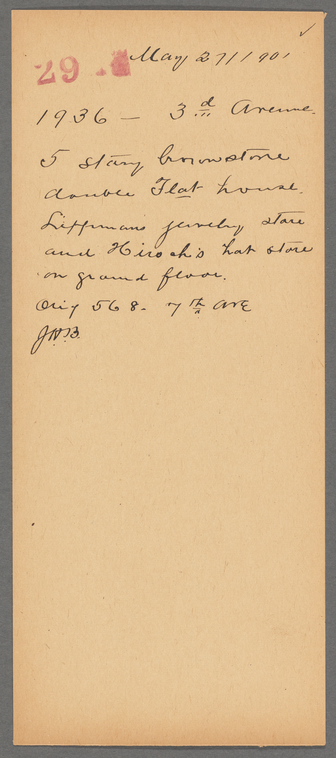 29
May 27/1901
1936 - 3rd Avenue.
5 story brownstone
double Flat house.
Lippmans jewelry store
and Hirsch's hat store
on ground floor.
Orig 568 - 7th AVE
JHB.